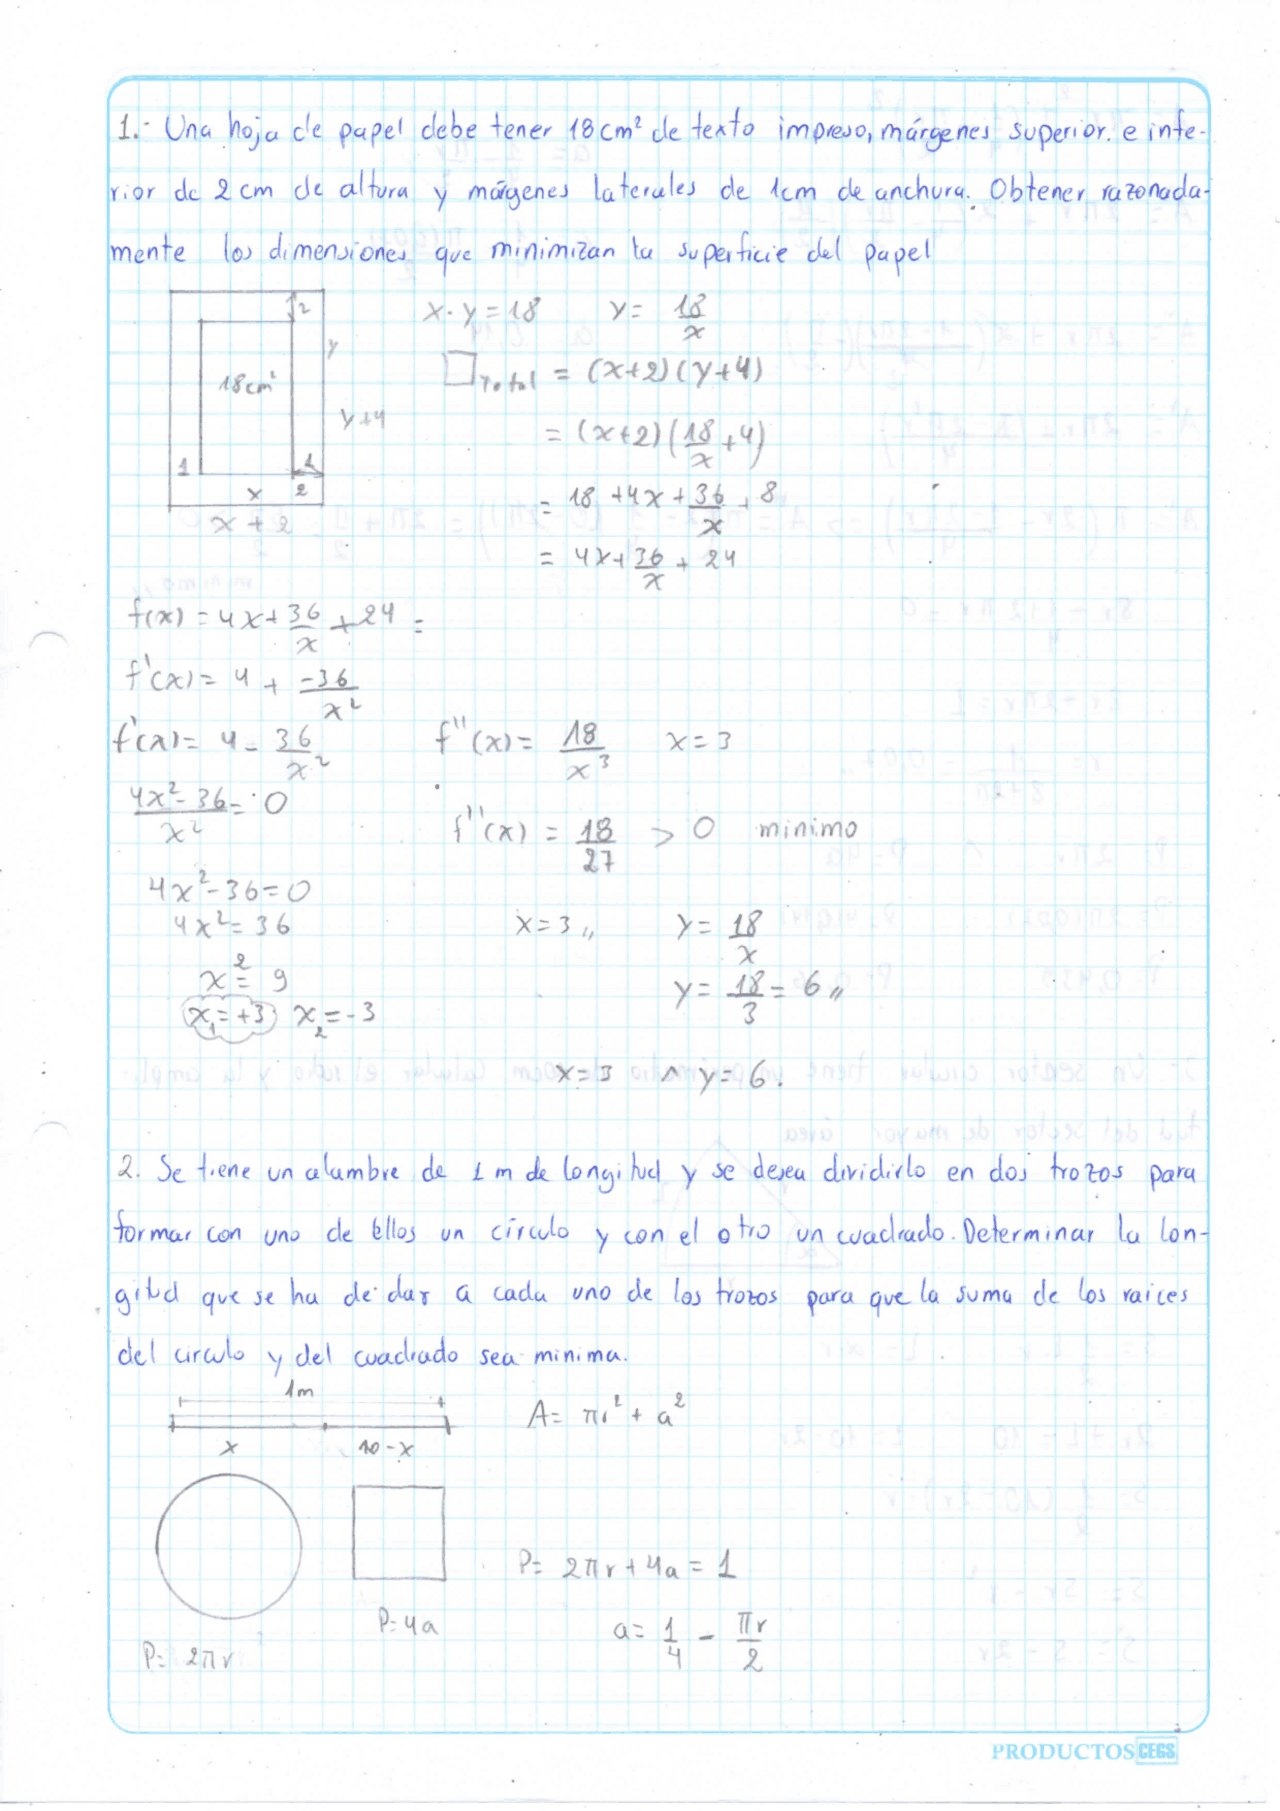 1.- Una hoja de papel debe tener 18 cm² de texto impreso, márgenes superior. e infe-
rior de 2 cm de altura y márgenes laterales de 1cm de anchura. Obtener razonada-
mente los dimensiones que minimizan la superficie del papel
x · y = 18    y = 18/x
2
y
18cm²
□Total = (x+2)(y+4)
y+4
= (x+2)(18/x + 4)
1 1
x 2
= 18 + 4x + 36/x + 8
x + 2
= 4x + 36/x + 24
f(x) = 4x + 36/x + 24 =
f'(x) = 4 + -36/x²
f'(x) = 4 - 36/x²    f''(x) = 18/x³    x = 3
4x² - 36/x² = 0
f''(x) = 18/27 > 0 minimo
4x² - 36 = 0
4x² = 36    x = 3,,    y = 18/x
x² = 9    y = 18/3 = 6,,
x₁ = +3  x₂ = -3
x = 3 ∧ y = 6.
2. Se tiene un alambre de 1 m de longitud y se desea dividirlo en dos trozos para
formar con uno de ellos un círculo y con el otro un cuadrado. Determinar la lon-
gitud que se ha de dar a cada uno de los trozos para que la suma de los raices
del circulo y del cuadrado sea minima.
1m
A = πr² + a²
x    10 - x
P = 2πr + 4a = 1
P = 4a    a = 1/4 - πr/2
P = 2πr
PRODUCTOS CEGS